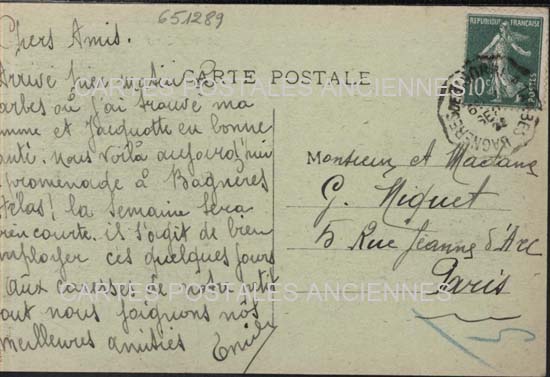 651289
Chers Amis.
CARTE POSTALE
RÉPUBLIQUE FRANÇAISE
10c
Arrivé hier matin à
arbes où j'ai trouvé ma
emme et Jacquotte en bonne
anté. nous voilà aujourd'hui
promenade à Bagnères
élas! la semaine sera
bien courte. il s'agit de bien
employer ces quelques jours
aux caresses de notre
out nous joignons nos
meilleures amitiés
Emile
Monsieur et Madame
G. Niquet
5 Rue Jeanne d'Arc
Paris
CARTES POSTALES ANCIENNES
CARTES POSTALES ANCIENNES